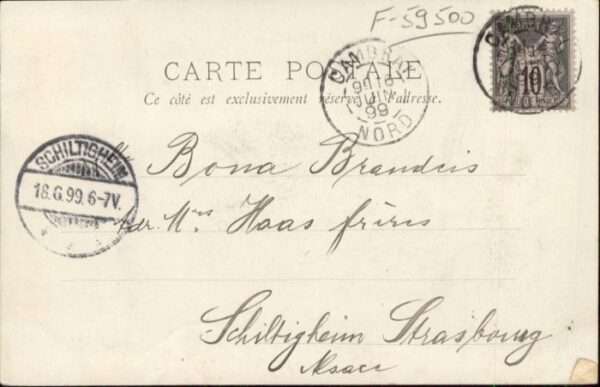 F-59500
CAMBRAI
NORD
JUIN
99
CAMBR
10
CARTE POSTALE
Ce côté est exclusivement réservé à l'adresse.
SCHILTIGHEIM
18.6.99.6-7V.
Bona Brandeis
Adr. Mrs Haas frères
Schiltigheim Strasbourg
Alsace